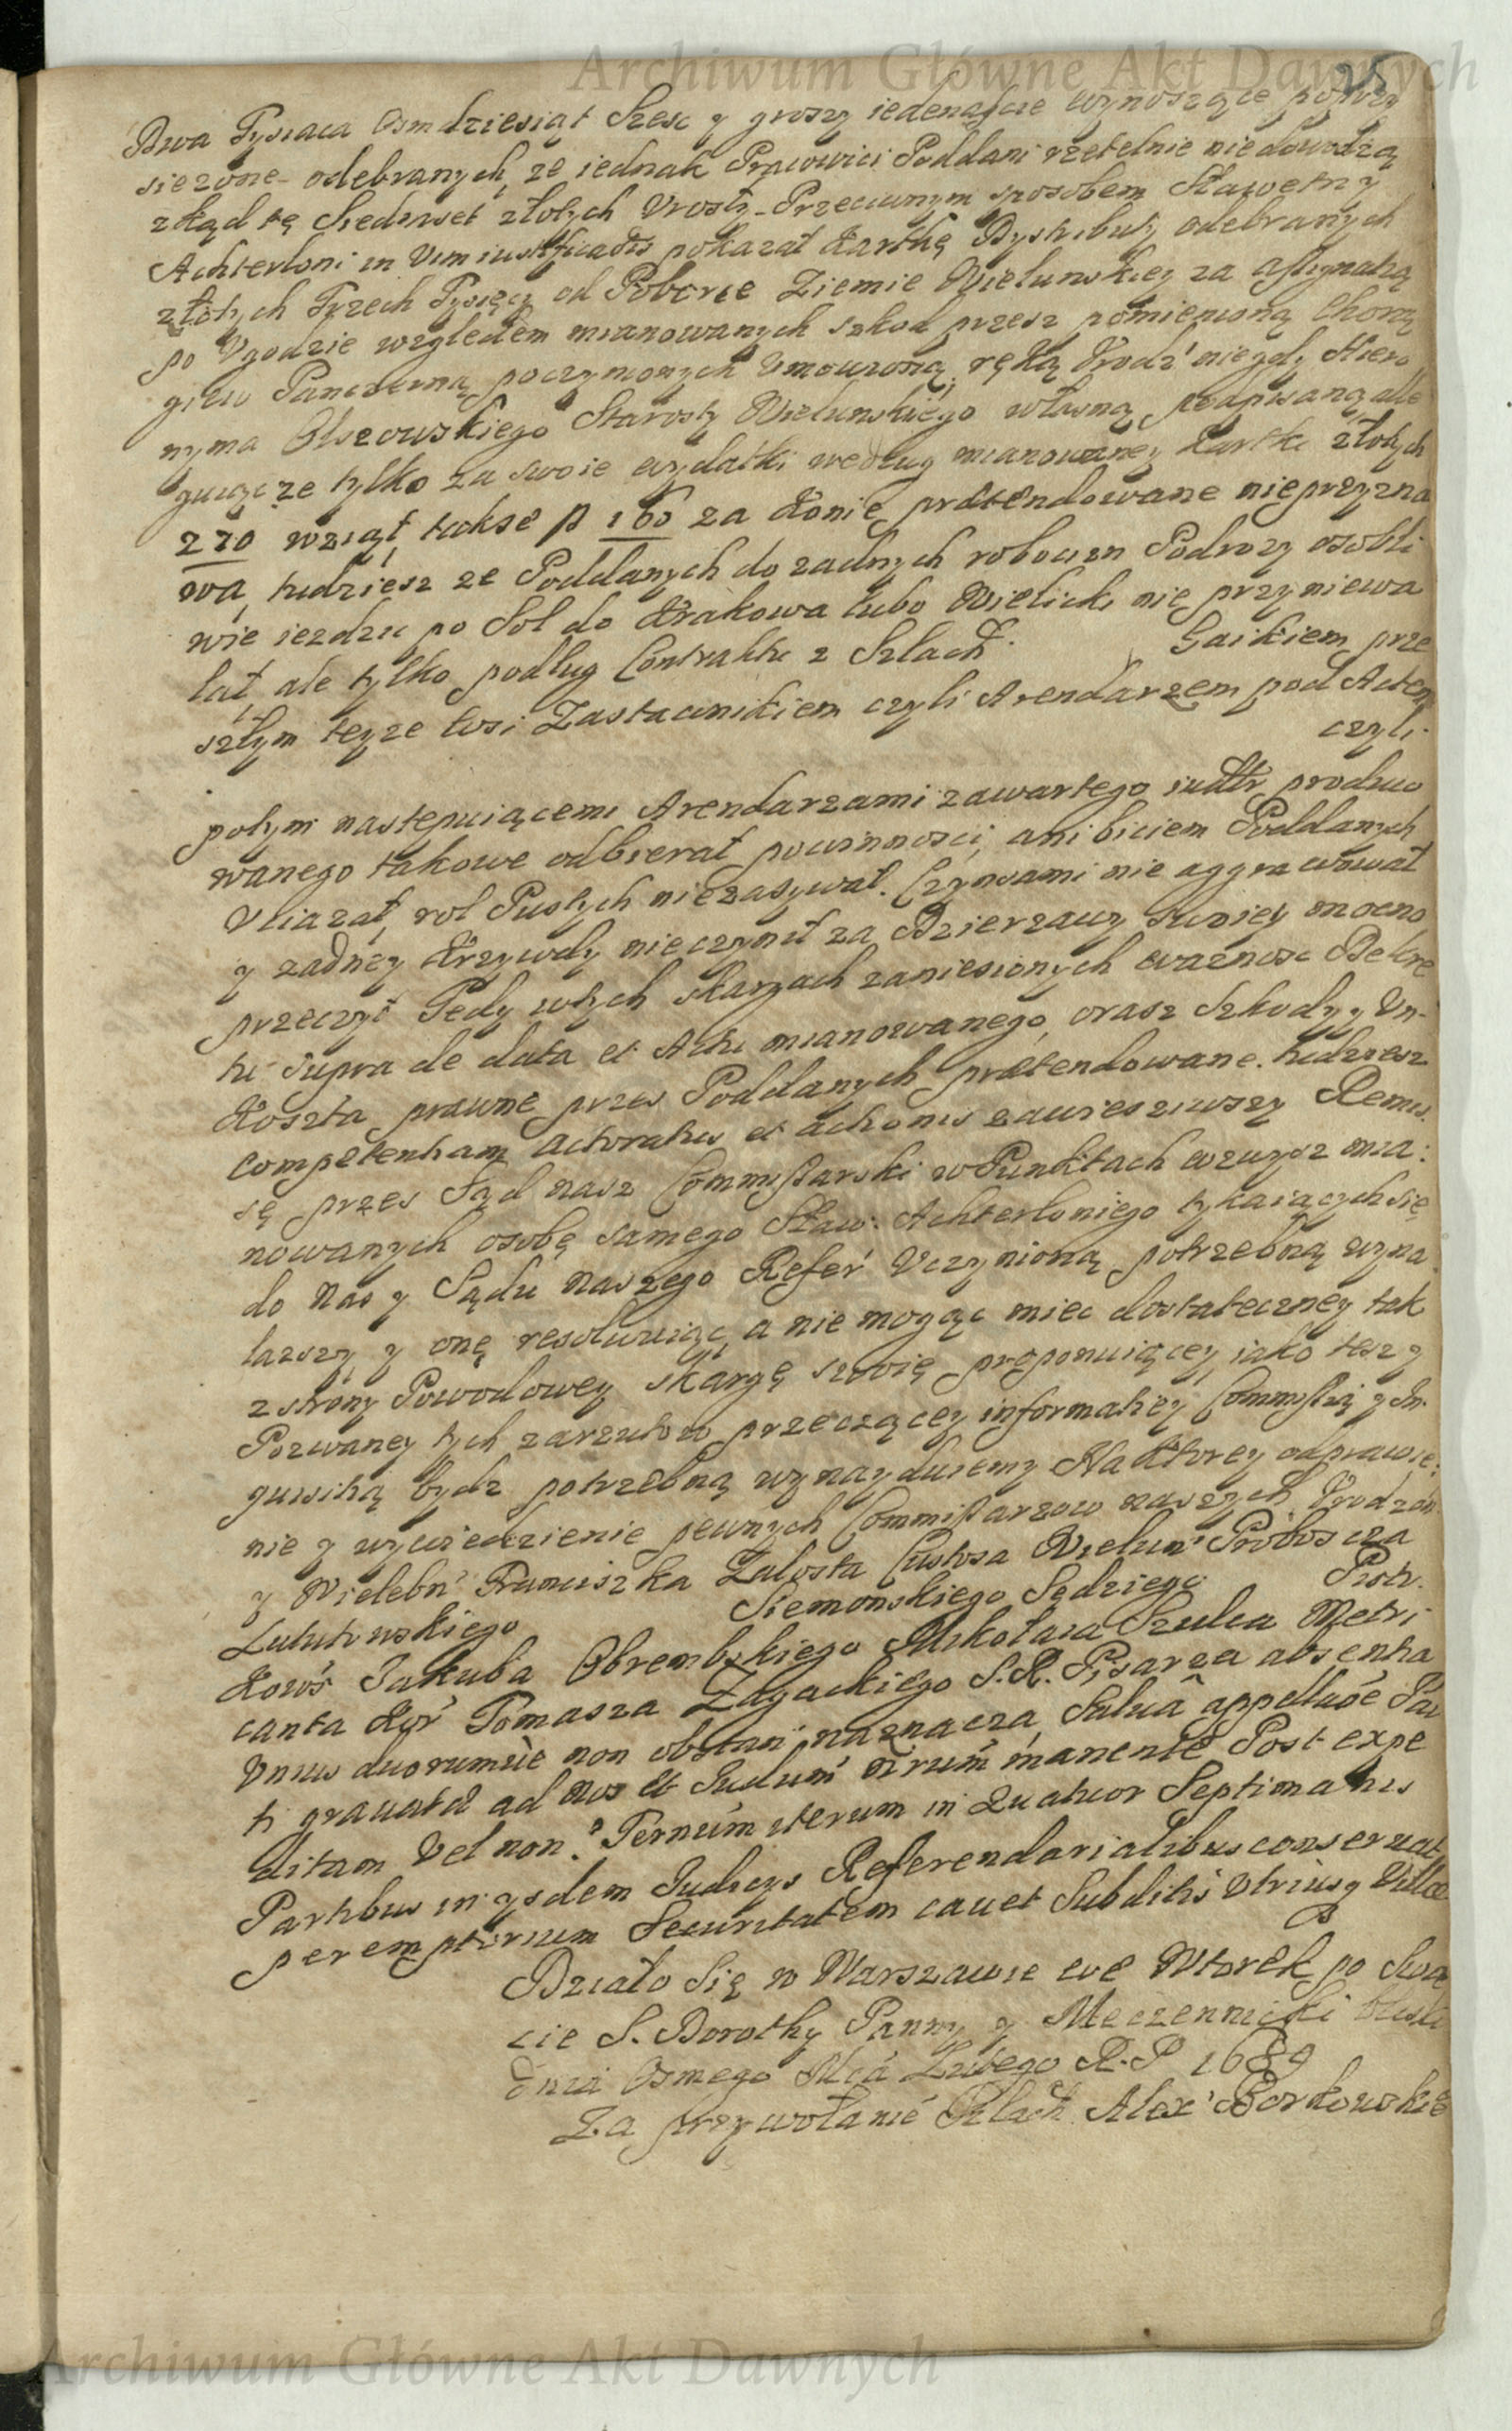 Archiwum Główne Akt Dawnych
25
Dwa Tysiaca Osmdziesiąt Szesc y groszy iedenascie wynoszące poprzy
sięzone odebranych, ze iednak Pracowici Poddani rzetelnie niedowodzą
zkąd tę Siedmset złotych Urosły. Przeciwnym sposobem Sławetny
Achterloni in Vim iustificaōis pokazał Kartkę Dystributy odebranych
złotych Trzech Tysięcy od Poborce Ziemie Wielunskiey za assygnatią
po Ugodzie względem mianowanych szkod przesz pomienioną Chorą
giew Pancerną poczynionych Umowioną, ręką Urodź niegdy Hiero
nyma Olszowskiego Starosty Wielunskiego własną podpisaną alle
guiąc ze tylko za swoie wydatki według mianowaney Kartki złotych
270 wziął, takse p 160 za Konie prætendowane nieprzyzna
wa, tudziesz ze Poddanych do zadnych robocizn Podrozy osobli
wie iezdzic po Sol do Krakowa lubo Wieliczki nie przyniewa
lał, ale tylko podług Contraktu z Szlach. Gaikiem prze
szłym teyze wsi Zastawnikiem czyli Arendarzem pod Actem
czyli
potym następuiącemi Arendarzami zawartego iudłr produco
wanego takowe odbierał powinnosci, ani biciem Poddanych
Uciazał, rol Pustych niezasywał. Czynszami nie aggrawował
y zadney Krzywdy nieczynił za Dzierzawy swoiey mocno
przeczył Tedy wtych skargach zaniesionych wazność Dekre
tu supra de data et Actu mianowanego, orasz Szkody y Un-
Koszta prawne przes Poddanych prætendowane. tudziesz
competentiam actoratus et actionis zawiesziwszy Remis.
sę przes Sąd nasz Commissarski w Punktach wzwysz mia:
nowanych osobę samego Sław: Achterloniego tykaiących się
do nas y Sądu naszego Refer Uczynioną potrzebną wyna
lazszy y onę resolwuiąc, a nie mogąc miec dostateczney tak
z strony Powodowey skargę swoię proponuiącey, iako tesz y
Pozwaney tych zarzutow przeczącey informatiey Commissią y In-
quisitią bydz potrzebną wynayduiemy Na Ktorey odprawie:
nie y wywiedzienie pewnych Commissarzow naszych Urodzon
y Wielebń Franciszka Zalosta Custosa Wieluń Proboscza
Lututowskiego Siemonskiego Sędziego Piotr.
Kowś Jakuba Obrembskiego Mikołaia Szulca Metri
canta Kor Tomasza Zbgackiego S.R. Pisarza absentia
Unius duorumue non obstan naznacza, Salua appellaōe Par
ti grauatæ ad nos et Iudium nrum manente Post expe
ditam Vel non. Pernum iterum in Quatuor Septimanis
Partibus in ysdem Iudicys Referendarialibus conseruat
peremptorium Securitatem cauet Subditis Utriusq Villæ
Działo Się w Warszawie we Wtorek po Swię
cie S. Dorothy Panny y Męczennicki
dnia Osmego Mca Lutego R.P 1689
Za przywołanie Szlach. Alex: Borkowskie
Archiwum Główne Akt Dawnych